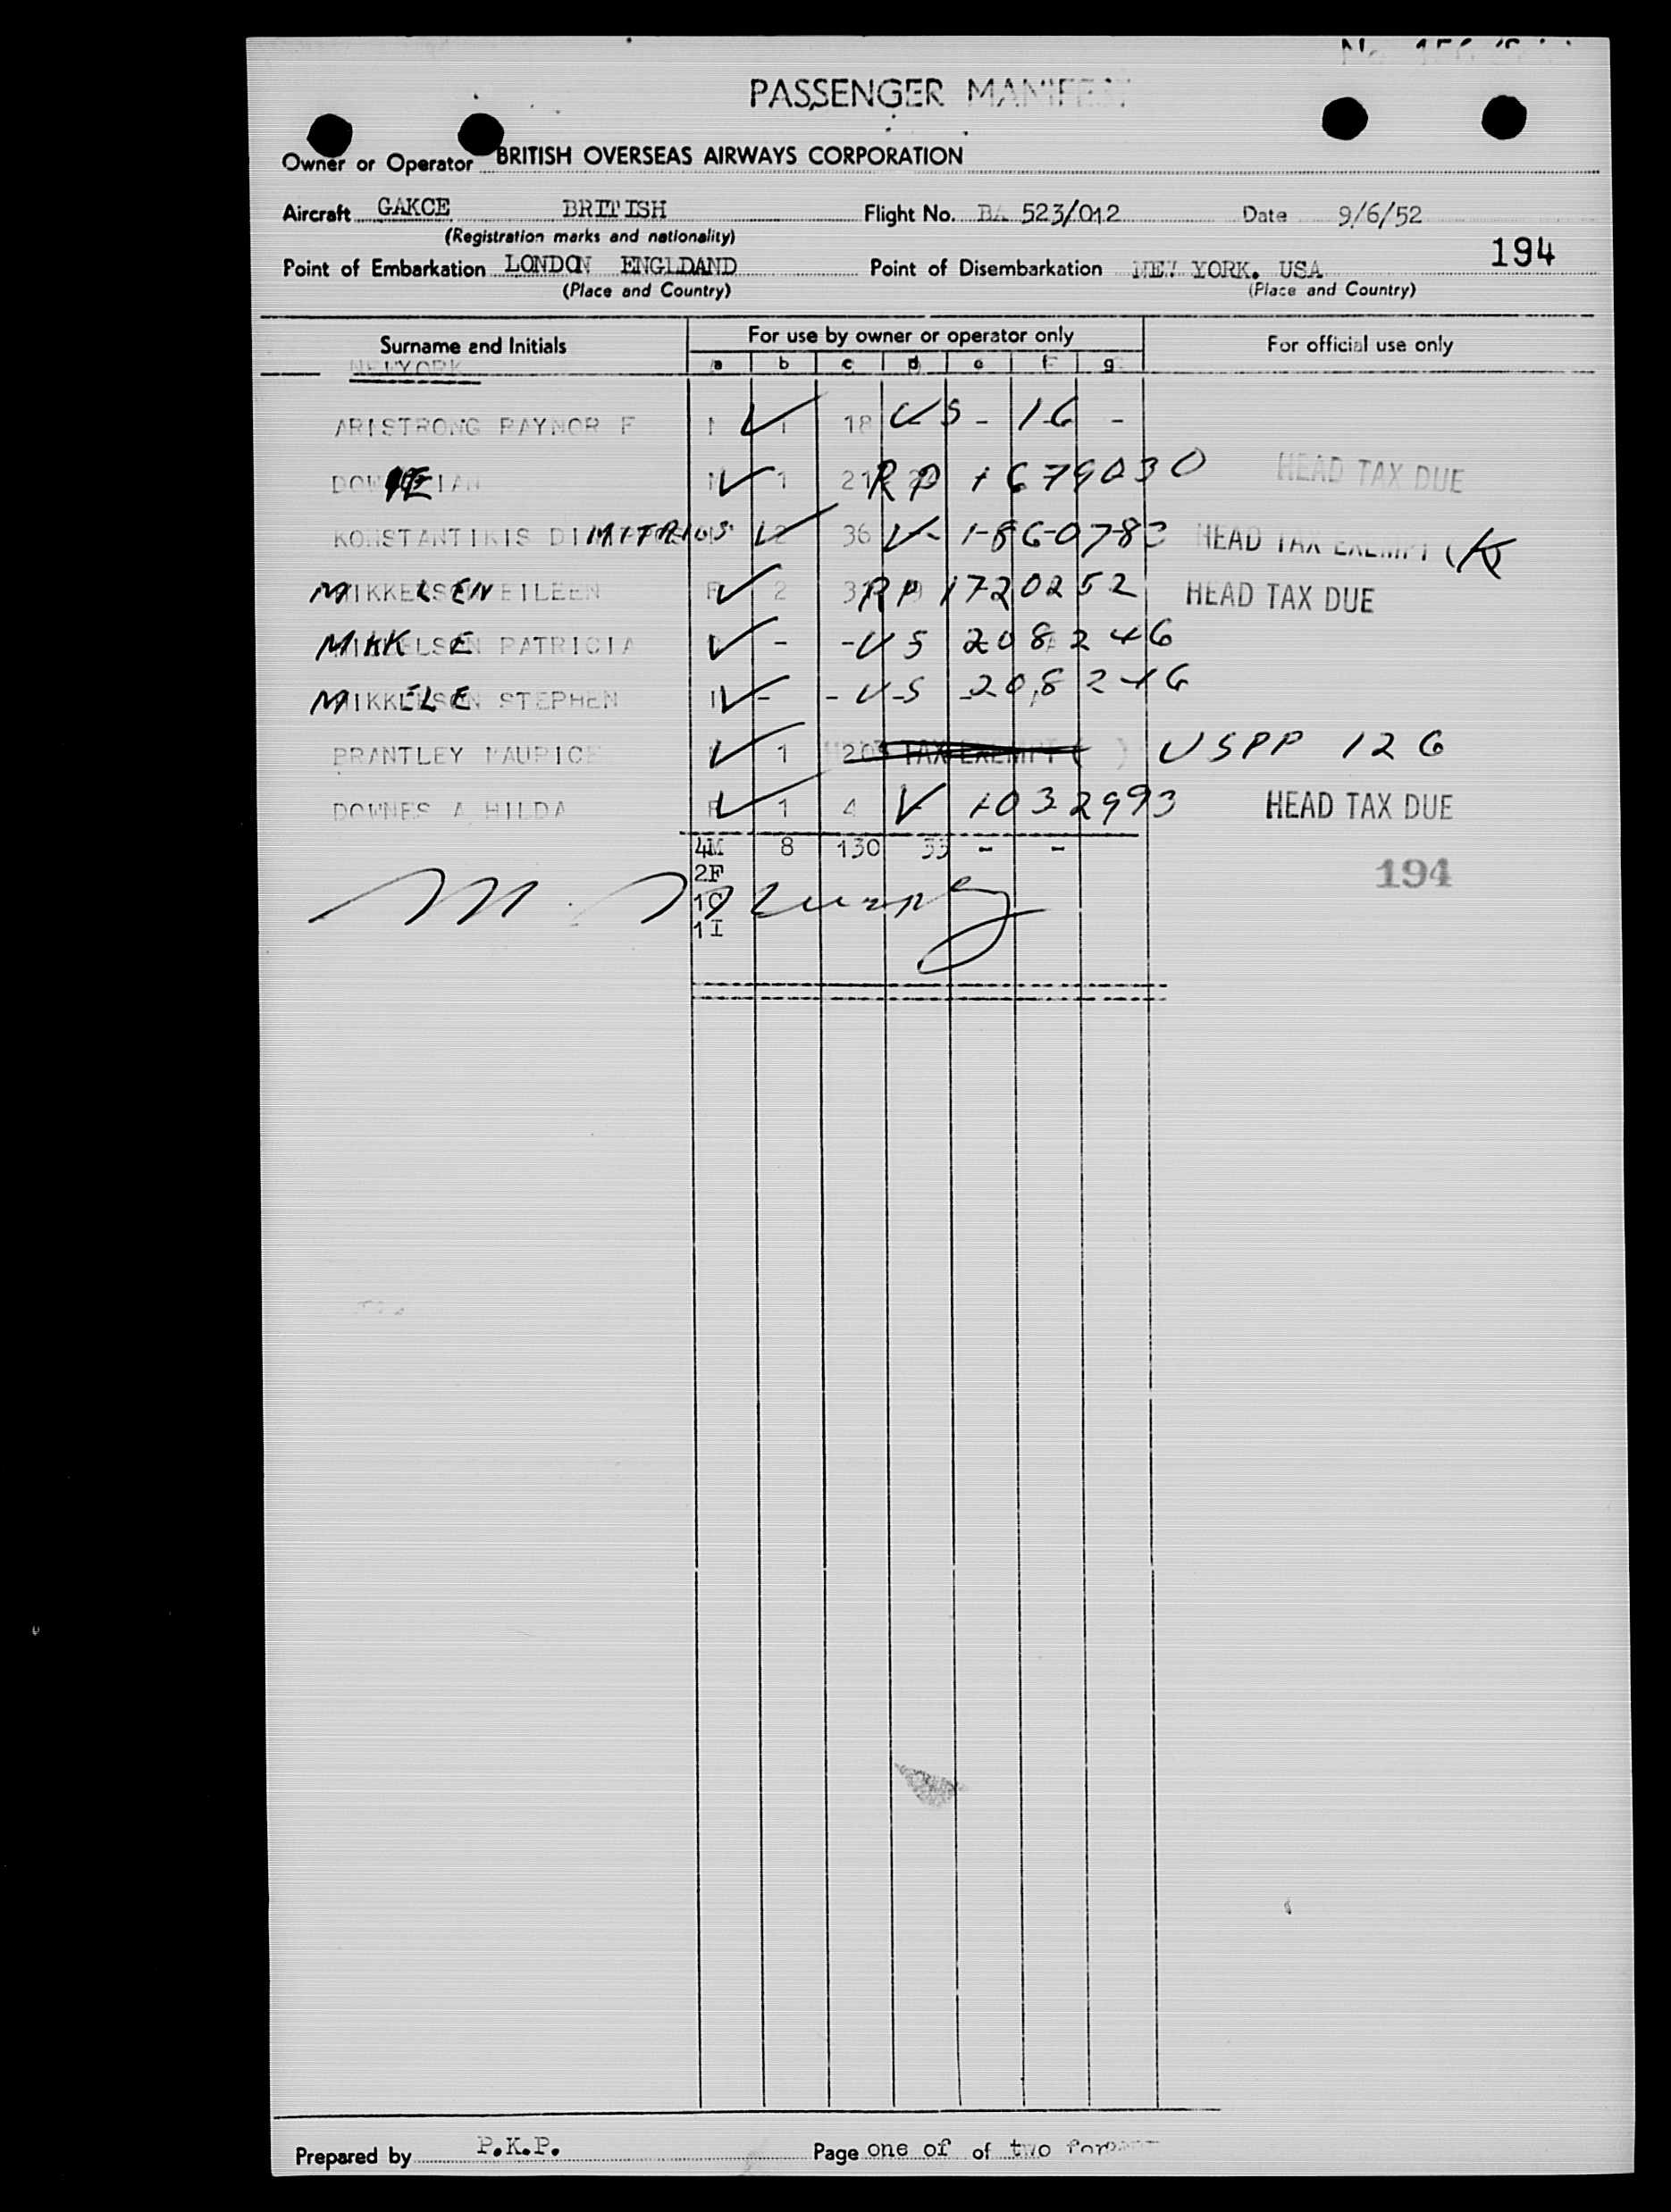 PASSENGER MANIFEST
Owner or Operator BRITISH OVERSEAS AIRWAYS CORPORATION
Aircraft GAKCE BRITISH Flight No. BA 523/012 Date 9/6/52
(Registration marks and nationality)
194
Point of Embarkation LONDON ENGLDAND Point of Disembarkation NEW YORK. USA
(Place and Country) (Place and Country)
Surname and Initials For use by owner or operator only For official use only
a b c d e f g
NEWYORK
ARMSTRONG RAYNOR F M 1 18 US - 16 -
IAN M 1 21 RP 1679030 HEAD TAX DUE
KONSTANTIKIS DIMITRIOS 2 36 V- 1-860783 HEAD TAX EXEMPT (K)
MIKKELSEN EILEEN F 2 RP 1720252 HEAD TAX DUE
MIKKELSEN PATRICIA - - US 208246
MIKKELSEN STEPHEN - - US 208246
BRANTLEY MAURICE 1 20 HEAD TAX EXEMPT ( ) USPP 126
DOWNES A HILDA F 1 4 V 1032993 HEAD TAX DUE
4M 8 130 33 - -
2F
194
1C
1I
Prepared by P.K.P. Page one of of two for